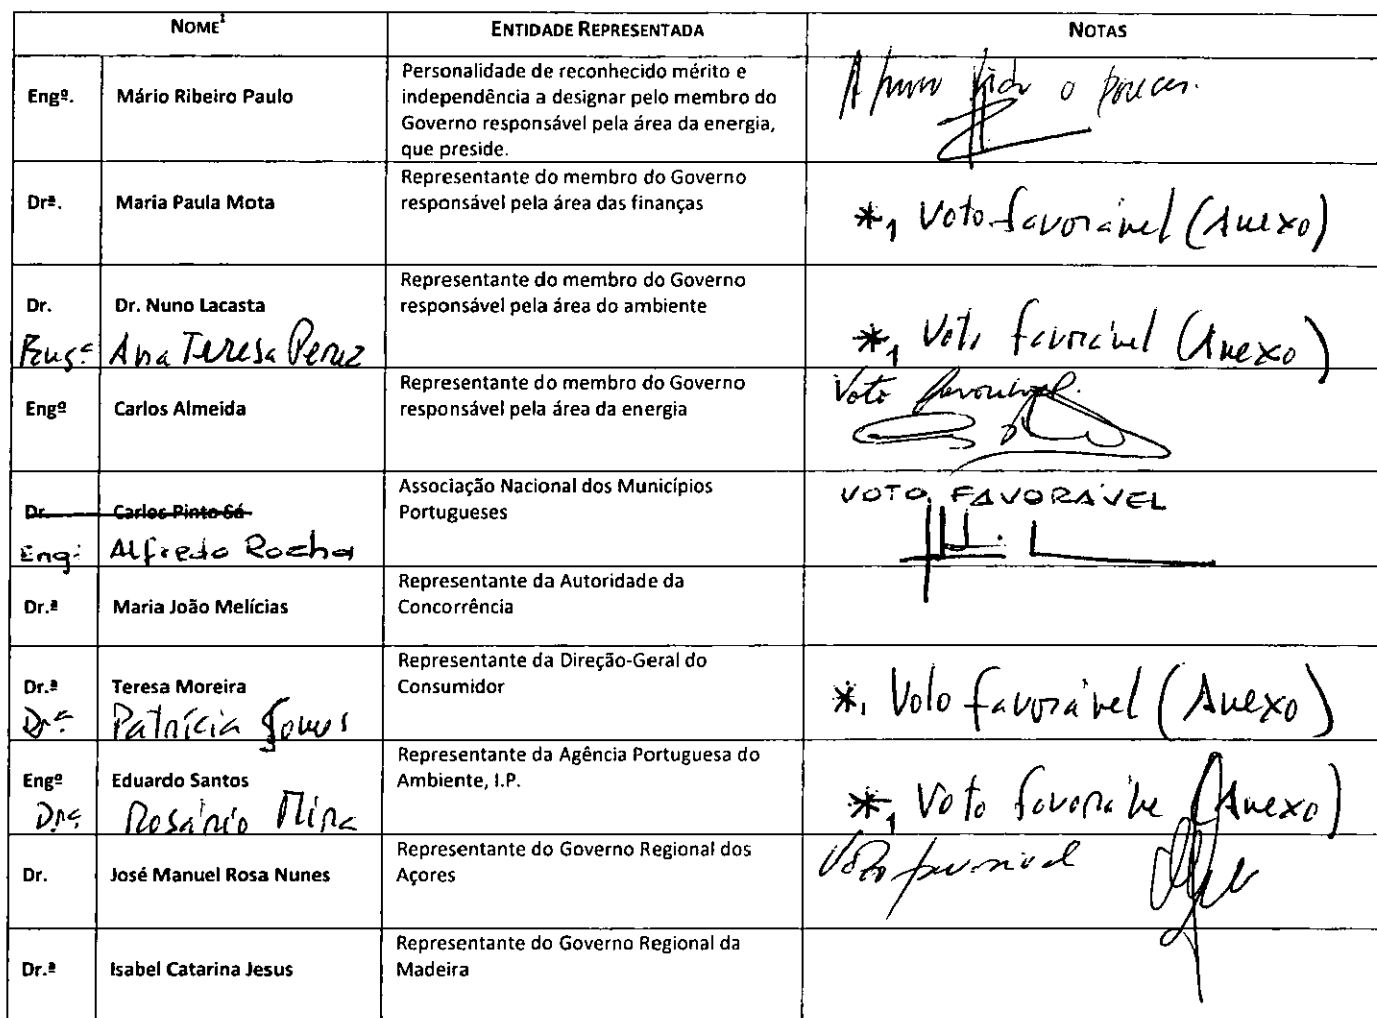 NOME¹ ENTIDADE REPRESENTADA NOTAS
Engº. Mário Ribeiro Paulo
Personalidade de reconhecido mérito e
independência a designar pelo membro do
Governo responsável pela área da energia,
que preside.
o
Drª. Maria Paula Mota
Representante do membro do Governo
responsável pela área das finanças
*1 Voto favorável (Anexo)
Dr. Dr. Nuno Lacasta
Engª Ana Teresa Perez
Representante do membro do Governo
responsável pela área do ambiente
*1 Voto favorável (Anexo)
Engº Carlos Almeida
Representante do membro do Governo
responsável pela área da energia
Voto favorável.
Dr. Carlos Pinto Sá
Eng: Alfredo Rocha
Associação Nacional dos Municípios
Portugueses
VOTO FAVORÁVEL
Dr.ª Maria João Melícias
Representante da Autoridade da
Concorrência
Dr.ª Teresa Moreira
Drª Patrícia Gomes
Representante da Direção-Geral do
Consumidor
*1 Voto favorável (Anexo)
Engº Eduardo Santos
Drª Rosário
Representante da Agência Portuguesa do
Ambiente, I.P.
*1 Voto favoráve (Anexo)
Dr. José Manuel Rosa Nunes
Representante do Governo Regional dos
Açores
Voto favorável
Dr.ª Isabel Catarina Jesus
Representante do Governo Regional da
Madeira